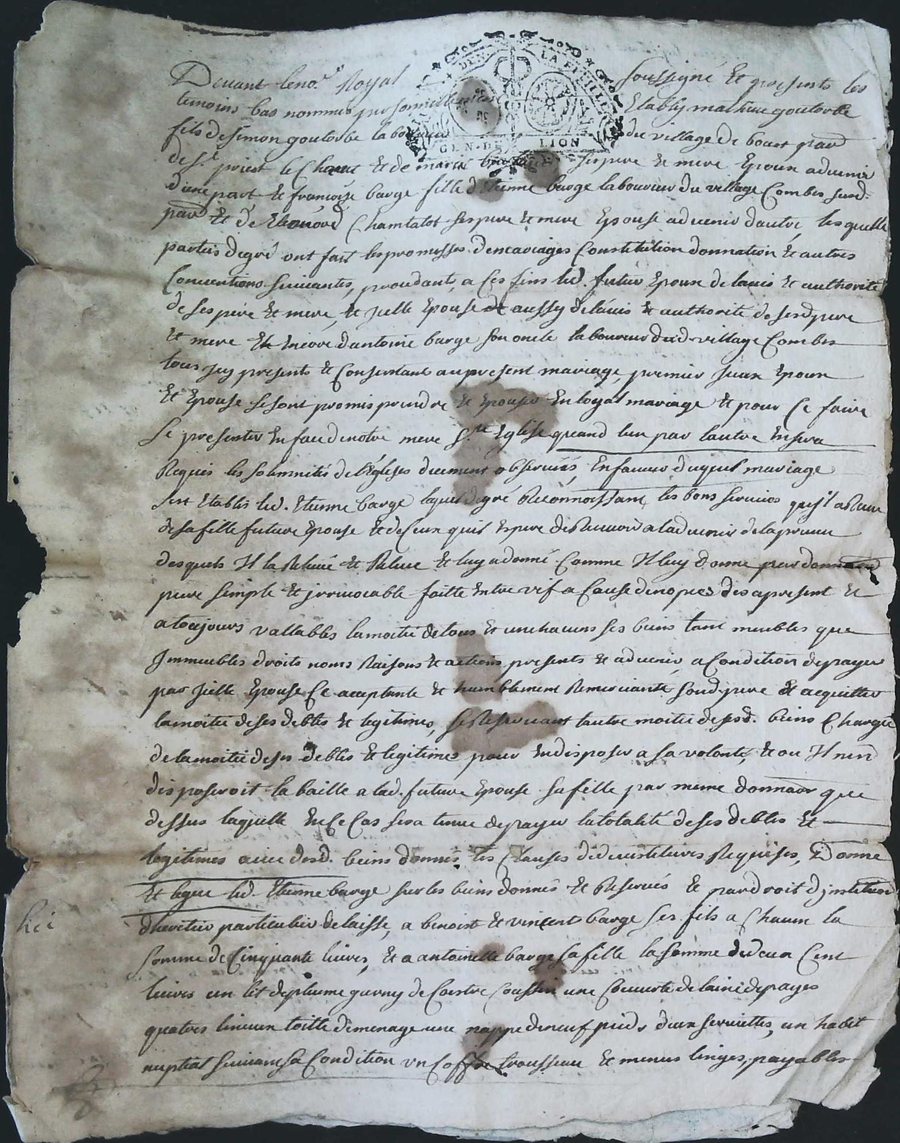 DEN
LA FEUILLE
GEN. DE LION
Devant le no.re Royal soussigné et presents les
temoins bas nommes personnellement Etably mathieu goutorbe
fils de simon goutorbe laboureur du village de bourt parr
de s.t priest le et de marie ses pere et mere Epoux advenir
d'une part et françoise barge fille d'Etienne barge laboureur du village Combes susd.
parr et de Eleonord Chamtalot ses pere et mere Epouse advenir d'autre lesquelle
parties de gré ont fait les promesses de mariages Constitution donnation et autres
Conventions suivantes, procedants a ces fins led. futur Epoux de lavis et authorité
de ses pere et mere, et jcelle Epouse aussy de lavis et authorité de sesd pere
et mere et Encore d'antoine barge son oncle laboureur dud. village Combes
tous jcy presents et Consentant au present mariage, premier jceux Epoux
et Epouse se sont promis prendre et Epouser En loyal mariage et pour ce faire
se presenter En face de notre mere S.te Eglise quand lun par lautre En sera
Requis les solemnités de l'Eglises duement observées, En faveur duquel mariage
sest Etablis led. Etienne barge lequel de gré Reconnoissant les bons services qu'jl a Receu
de sa fille future Epouse et de ceux quil Espere de Recevoir a ladvenir de la preuve
desquels Il la Releve et Releve et luy a donné comme Il luy donne par donnaon
pure simple et jrrevocable faitte Entre vif a cause de nopces des a present et
a toujours vallables la moitié de tous et un chacuns ses biens tant meubles que
Immeubles droits noms Raisons et actions presents et advenir, a condition de payer
par jcelle Epouse ce acceptante et humblement Remerciante sond. pere et acquitter
la moitié de ses debtes et legitimes, se Reservant lautre moitié desd. biens chargée
de la moitié de ses debtes et legitimes pour En disposer a sa volonté et ou Il nen
disposeroit la baille a lad. future Epouse sa fille par meme donnaon que
dessus laquelle En ce cas sera tenue de payer la totalité de ses debtes et
legitimes avec desd. biens donnés, les clauses de devestitures Requises, Donne
et legue led. Etienne barge sur les biens donnés et Reservés et par droit d'jnstitution
dheritier particulier delaisse, a benoist et vincent barge ses fils a chacun la
somme de cinquante livres, et a antoinette barge sa fille la somme de deux cent
livres un lit de plume garny de coistre coussin une couverte de laine de pays
quatres linceux toille de menage une nappe de neuf pieds deux serviettes, un habit
nuptial suivant sa condition un coffre trousseau et menus linges, payables